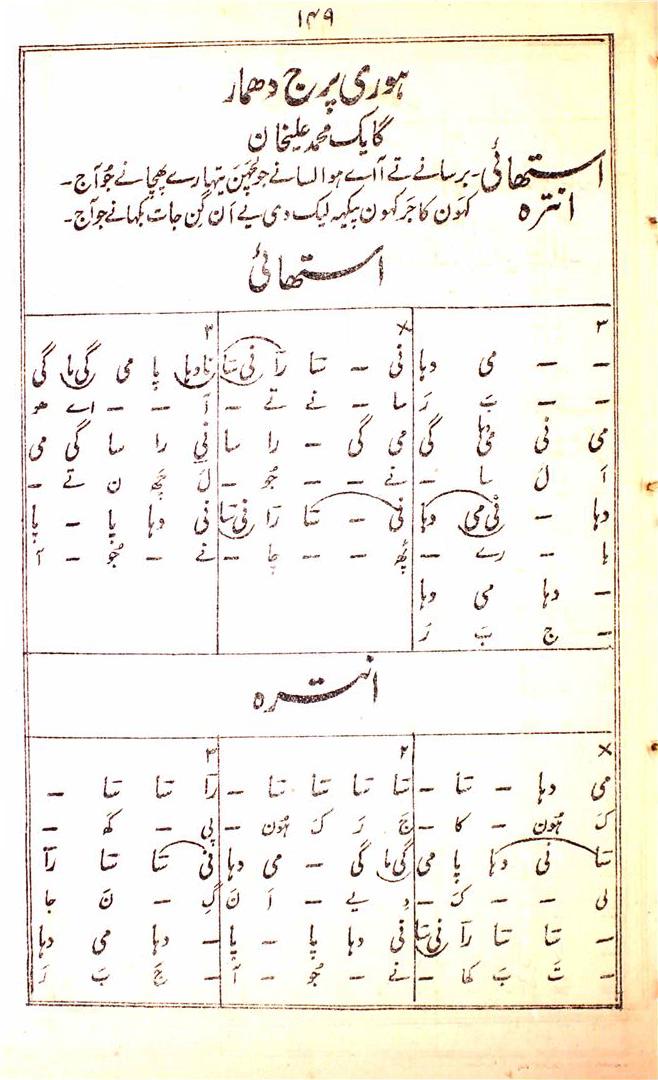 ۱۴۹
ہوری پرج دھمار
گایک محمد علیخان
استھائی - برسانے تے آاے ہو السانے جو چھپن تہارے پہچانے جو آج -
انترہ کہون کاجر کہون پیکہ لیک دی بے ان گن جات بکہانے جو آج -
استھائی
۳ × ۲
- - می دہا نی - تا را نی تا نا دہا پا می گی ما گی
- - ب ر سا - نے تے - آ - - اے ہو
می نی می گی می گی - را سا نی را سا گی می
آ ل سا - نے - - جو - ن تے -
دہا - نی می دہا نی - تا را نی تا نی دہا پا - پا
ہا - رے - پہ - - چا - نے - جو - آ
- دہا می دہا
- ج ب ر
انترہ
× ۲ ۳
می دہا - تا - تا تا تا تا - را تا تا -
ک ہون - کا - ج ر ک ہون - پی - کہ -
تا نی دہا پا می گی ما گی - می دہا نی تا تا را
لی - - ک - د بے - ا ن گ - ن جا
- تا تا را نی تا نی دہا پا - پا - دہا می دہا
- ت ب کا - نے - جو - آ - ج ب ر